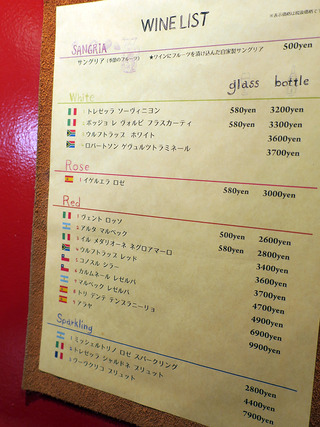 WINE LIST
SANGRIA
サングリア (季節のフルーツ) ★ワインにフルーツを漬け込んだ自家製サングリア 500yen
glass bottle
White
トレゼッラ ソーヴィニヨン 580yen 3200yen
ポッジョ レ ヴォルピ フラスカーティ 580yen 3300yen
ウルフトラップ ホワイト 3600yen
ロバートソン ゲヴュルツトラミネール 3700yen
Rose
1 イゲルエラ ロゼ 580yen 3000yen
Red
ヴェント ロッソ 500yen 2600yen
アルタ マルベック 580yen 2800yen
イル メダリオーネ ネグロアマーロ 3400yen
ウルフトラップ レッド 3600yen
コノスル シラー 3700yen
カルムネール レゼルバ 4700yen
マルベック レゼルバ 4900yen
トリデンテ テンプラニーリョ 6900yen
アラヤ 9900yen
Sparkling
ミッシェルトリノ ロゼ スパークリング 2800yen
トレゼッラ シャルドネ ブリュット 4400yen
ヴーヴクリコ ブリュット 7900yen